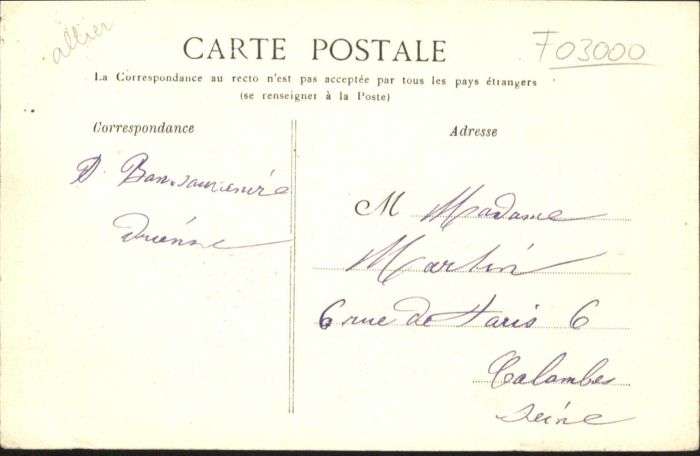 allier
CARTE POSTALE
F03000
La Correspondance au recto n'est pas acceptée par tous les pays étrangers
(se renseigner à la Poste)
Correspondance
Adresse
M Madame
Martin
6 rue de Paris 6
Colombes
Seine